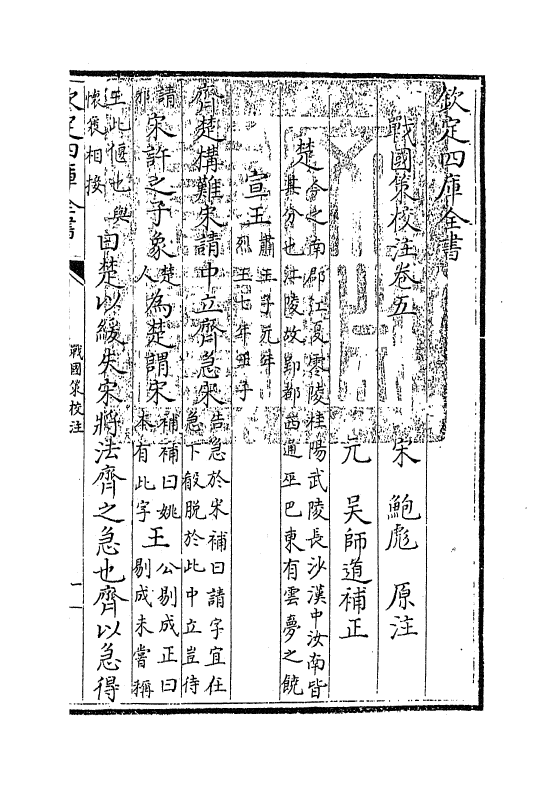 欽定四庫全書
戰國策校注卷五
宋 鮑彪 原注
元 吳師道補正
楚 今之南郡江夏零陵桂陽武陵長沙漢中汝南皆其分也江陵故郢都西通巫巴東有雲夢之饒
宣王 肅王子元年烈王七年壬子
齊楚構難宋請中立齊急宋 告急於宋補曰請字宜住急下般脫於此中立豈待
請邪 宋許之子象 楚人 為楚謂宋 補補曰姚本有此字 王 公剔成正曰剔成未嘗稱
王此偃也與懷襄相接 曰楚以緩失宋將法齊之急也齊以急得
欽定四庫全書
戰國策校注
一